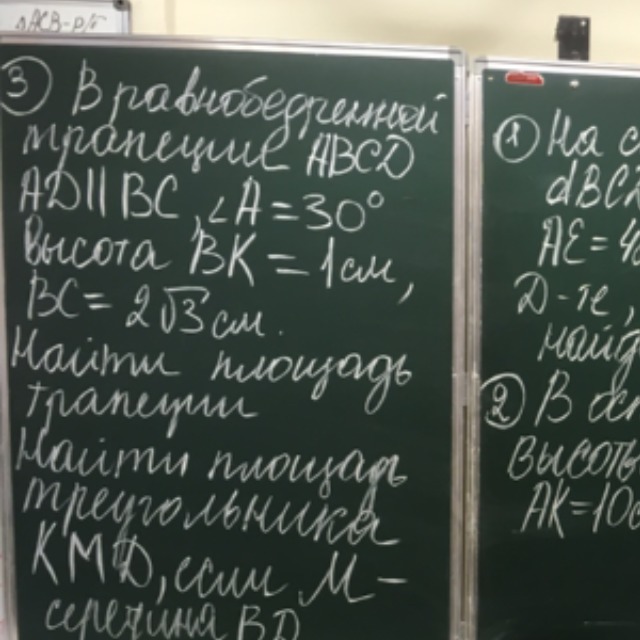 ΔACB-р/б
③ В равнобедренной
трапеции ABCD
AD||BC, ∠A=30°
высота BK = 1см,
BC = 2√3 см.
Найти площадь
трапеции
Найти площадь
треугольника
KMD, если М -
середина BD
① На с
dBCD
AE=4
D-те,
найд
② В ост
высоты
AK=10с